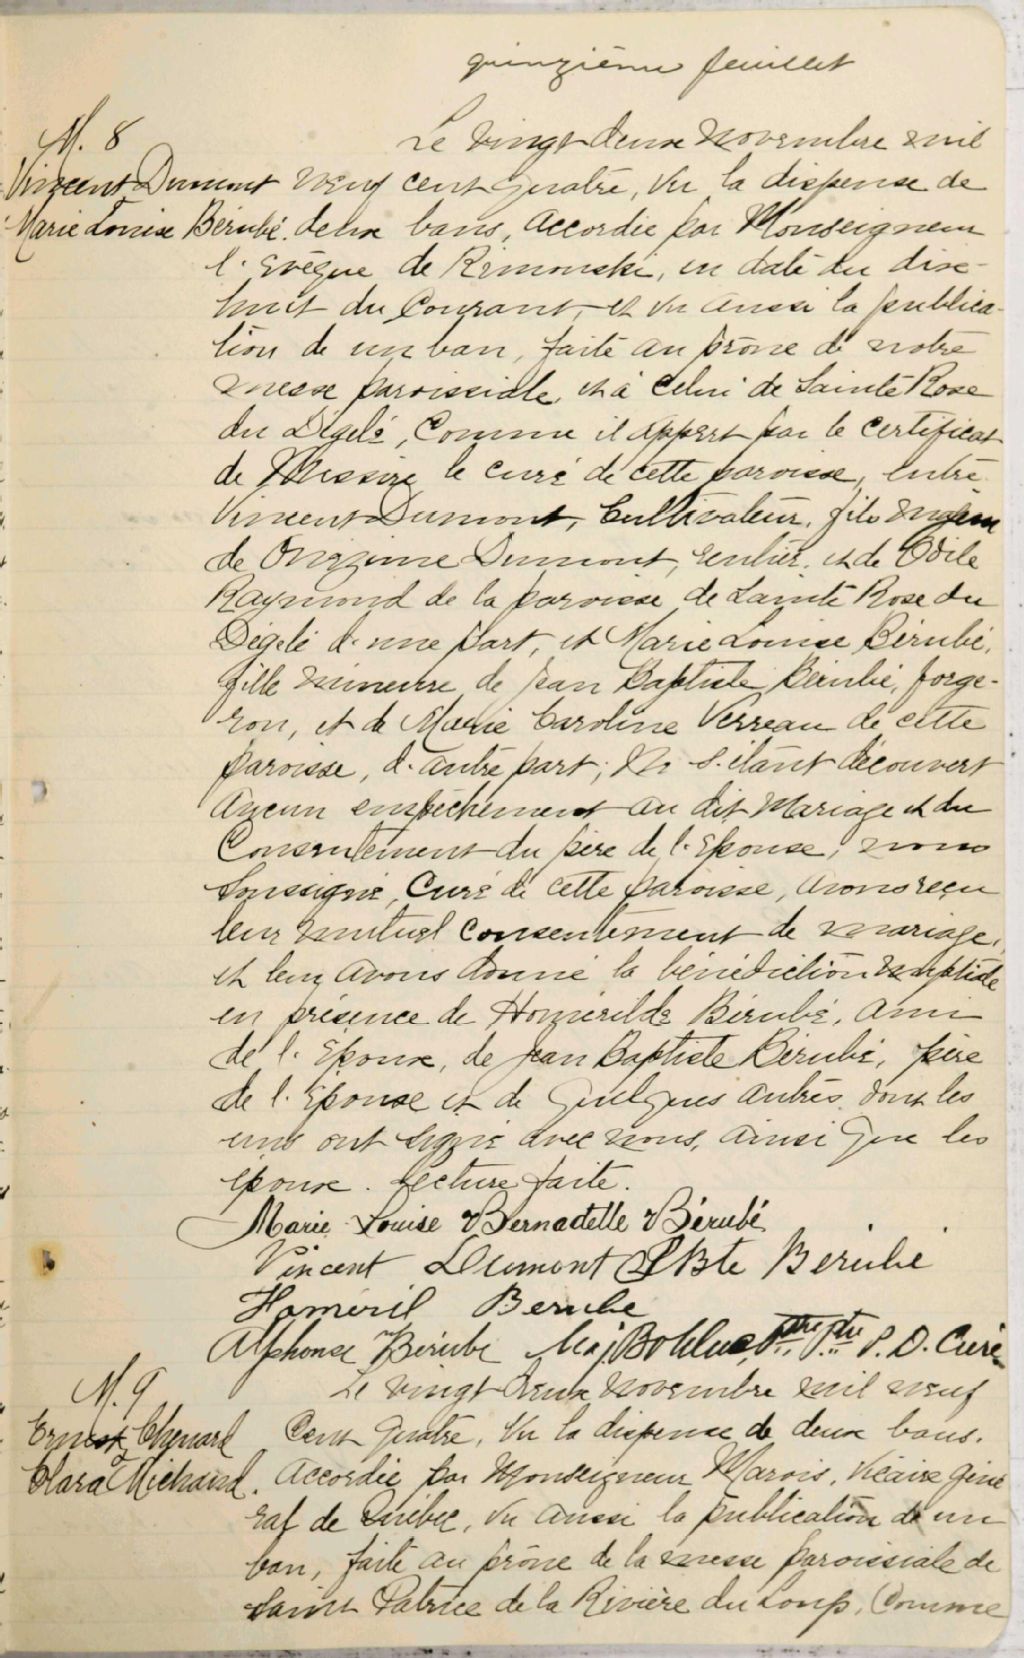 quinzième feuillet
M. 8
Vincent Dumont
Marie Louise Bérubé.
Le vingt deux novembre mil
neuf cent quatre, vu la dispense de
deux bans, accordée par Monseigneur
l'Evêque de Rimouski, en date du dix-
huit du Courant, et vu aussi la publica-
tion de un ban, faite au prône de notre
messe paroissiale, et à celui de Sainte Rose
du Dégelé, Comme il appert par le certificat
de Messire le curé de cette paroisse, entre
Vincent Dumont, Cultivateur, fils majeur
de Onézime Dumont, rentier, et de Odile
Raymond de la paroisse de Sainte Rose du
Dégelé d'une part, et Marie Louise Bérubé,
fille mineure de Jean Baptiste Bérubé, forge-
ron, et de Marie Caroline Verreau de cette
paroisse, d'autre part; Ne s'étant découvert
aucun empêchement au dit Mariage et du
Consentement du père de l'Epouse; nous
Soussigné, Curé de cette paroisse, avons reçu
leur mutuel consentement de mariage,
et leur avons donné la bénédiction nuptiale
en présence de Homérilde Bérubé, ami
de l'Epoux, de Jean Baptiste Bérubé, père
de l'Epouse et de quelques autres dont les
uns ont signé avec nous, ainsi que les
époux. Lecture faite.
Marie Louise Bernadette Bérubé
Vincent Dumont JBte Berubé
Homéril Berube
Alphonse Bérubé Ptre P. D. Curé
M. 9
Ernest Chenard
Clara Michaud.
Le vingt deux novembre mil neuf
Cent quatre, vu la dispense de deux bans.
accordée par Monseigneur Marois, Vicaire géné
ral de Québec, vu aussi la publication de un
ban, faite au prône de la messe paroissiale de
Saint Patrice de la Rivière du Loup, Comme